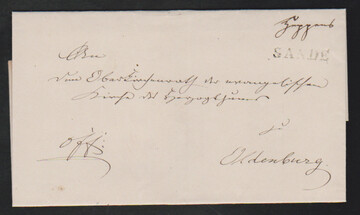 Heppens
SANDE
An
den Oberkirchenrath der evangelischen
Kirche des Herzogthums
zu
Oldenburg.